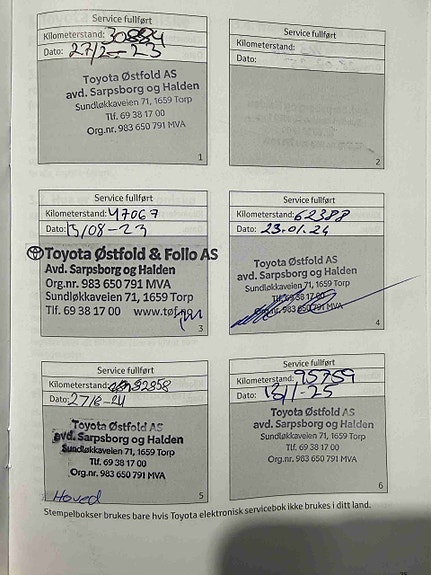 Service fullført
Kilometerstand: 30884
Dato: 27/2-23
Toyota Østfold AS
avd. Sarpsborg og Halden
Sundløkkaveien 71, 1659 Torp
Tlf. 69 38 17 00
Org.nr. 983 650 791 MVA
1
Service fullført
Kilometerstand:
Dato:
2
Service fullført
Kilometerstand: 47067
Dato: 15/08-23
Toyota Østfold & Follo AS
Avd. Sarpsborg og Halden
Org.nr. 983 650 791 MVA
Sundløkkaveien 71, 1659 Torp
Tlf. 69 38 17 00
3
Service fullført
Kilometerstand: 62388
Dato: 23.01.24
Toyota Østfold AS
avd. Sarpsborg og Halden
Sundløkkaveien 71, 1659 Torp
Tlf. 69 38 17 00
Org.nr. 983 650 791 MVA
4
Service fullført
Kilometerstand:
Dato:
Toyota Østfold AS
avd. Sarpsborg og Halden
Sundløkkaveien 71, 1659 Torp
Tlf. 69 38 17 00
Org.nr. 983 650 791 MVA
Hoved
5
Service fullført
Kilometerstand: 95759
Dato: 13/1-25
Toyota Østfold AS
avd. Sarpsborg og Halden
Sundløkkaveien 71, 1659 Torp
Tlf. 69 38 17 00
Org.nr. 983 650 791 MVA
6
Stempelbokser brukes bare hvis Toyota elektronisk servicebok ikke brukes i ditt land.